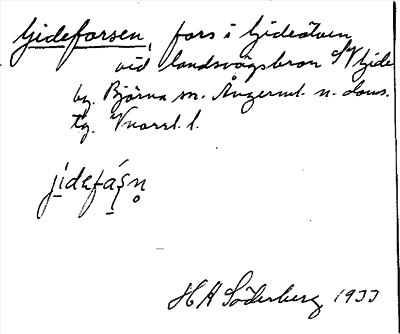 Gideforsen, fors i Gideälven
vid landsvägsbron SV Gide
by. Björna sn. Ångerml. n. doms.
tg. Vnorrl. l.
jidefáʂn̥
H H Söderberg 1933